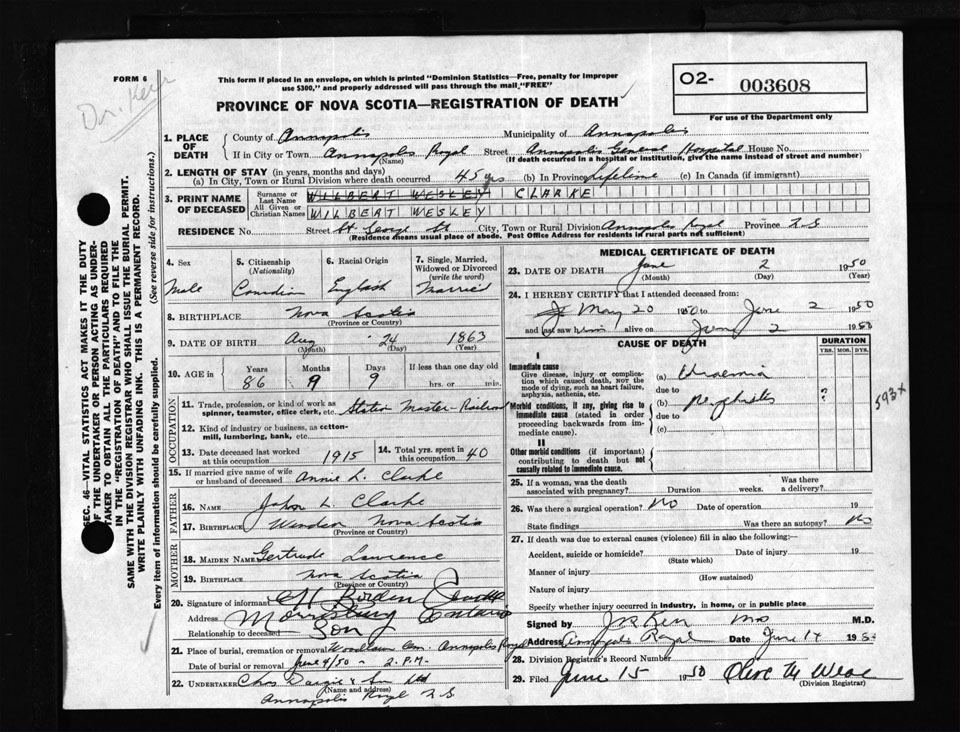 FORM 6
Dr. Kerr
This form if placed in an envelope, on which is printed "Dominion Statistics—Free, penalty for improper
use $300," and properly addressed will pass through the mail "FREE"
PROVINCE OF NOVA SCOTIA—REGISTRATION OF DEATH
O2- 003608
For use of the Department only
SEC. 46—VITAL STATISTICS ACT MAKES IT THE DUTY
OF THE UNDERTAKER OR PERSON ACTING AS UNDER-
TAKER TO OBTAIN ALL THE PARTICULARS REQUIRED
IN THE "REGISTRATION OF DEATH" AND TO FILE THE
SAME WITH THE DIVISION REGISTRAR WHO SHALL ISSUE THE BURIAL PERMIT.
WRITE PLAINLY WITH UNFADING INK. THIS IS A PERMANENT RECORD.
Every item of information should be carefully supplied. (See reverse side for instructions.)
1. PLACE OF DEATH
County of Annapolis Municipality of Annapolis
If in City or Town Annapolis Royal Street Annapolis General Hospital House No.
(Name) (If death occurred in a hospital or institution, give the name instead of street and number)
2. LENGTH OF STAY (in years, months and days)
(a) In City, Town or Rural Division where death occurred 45 yrs (b) In Province Lifetime (c) In Canada (if immigrant)
3. PRINT NAME OF DECEASED
Surname or Last Name WILBERT WESLEY CLARKE
All Given or Christian Names WILBERT WESLEY
RESIDENCE No. Street St. George St City, Town or Rural Division Annapolis Royal Province N.S
(Residence means usual place of abode. Post Office Address for residents in rural parts not sufficient)
4. Sex
Male
5. Citizenship (Nationality)
Canadian
6. Racial Origin
English
7. Single, Married, Widowed or Divorced (write the word)
Married
8. BIRTHPLACE Nova Scotia
(Province or Country)
9. DATE OF BIRTH Aug 24 1863
(Month) (Day) (Year)
10. AGE in Years Months Days If less than one day old
86 9 9 hrs. or min.
OCCUPATION
11. Trade, profession, or kind of work as
spinner, teamster, office clerk, etc. Station Master - Railroad
12. Kind of industry or business, as cotton-
mill, lumbering, bank, etc.
13. Date deceased last worked at this occupation 1915
14. Total yrs. spent in this occupation 40
15. If married give name of wife or husband of deceased Annie L. Clarke
FATHER
16. Name John L. Clarke
17. Birthplace Nova Scotia
(Province or Country)
MOTHER
18. MAIDEN NAME Gertrude Lawrence
19. BIRTHPLACE Nova Scotia
(Province or Country)
20. Signature of informant Borden
Address Morrisburg Ontario
Relationship to deceased Son
21. Place of burial, cremation or removal Woodlawn Cem. Annapolis Royal
Date of burial or removal June 4/50 - 2. P.M-
22. UNDERTAKER Chas Dargie & Son Ltd
(Name and address)
Annapolis Royal N S
MEDICAL CERTIFICATE OF DEATH
23. DATE OF DEATH June 2 1950
(Month) (Day) (Year)
24. I HEREBY CERTIFY that I attended deceased from:
May 20 1950 to June 2 1950
and last saw him alive on June 2 1950
CAUSE OF DEATH
DURATION
YRS. MOS. DYS.
I
Immediate cause
Give disease, injury or complica-
tion which caused death, NOT the
mode of dying, such as heart failure,
asphyxia, asthenia, etc.
(a) Uraemia
due to
Morbid conditions, if any, giving rise to
immediate cause (stated in order
proceeding backwards from im-
mediate cause).
(b) nephritis ?
due to
(c)
593X
II
Other morbid conditions (if important)
contributing to death but not
causally related to immediate cause.
25. If a woman, was the death associated with pregnancy? Duration weeks. Was there a delivery?
26. Was there a surgical operation? No Date of operation 19
State findings Was there an autopsy? No
27. If death was due to external causes (violence) fill in also the following:—
Accident, suicide or homicide? Date of injury 19
(State which)
Manner of injury
(How sustained)
Nature of injury
Specify whether injury occurred in industry, in home, or in public place
Signed by Kerr MD M.D.
Address Annapolis Royal Date June 14 1950
28. Division Registrar's Record Number
29. Filed June 15 1950 Olive M
(Division Registrar)